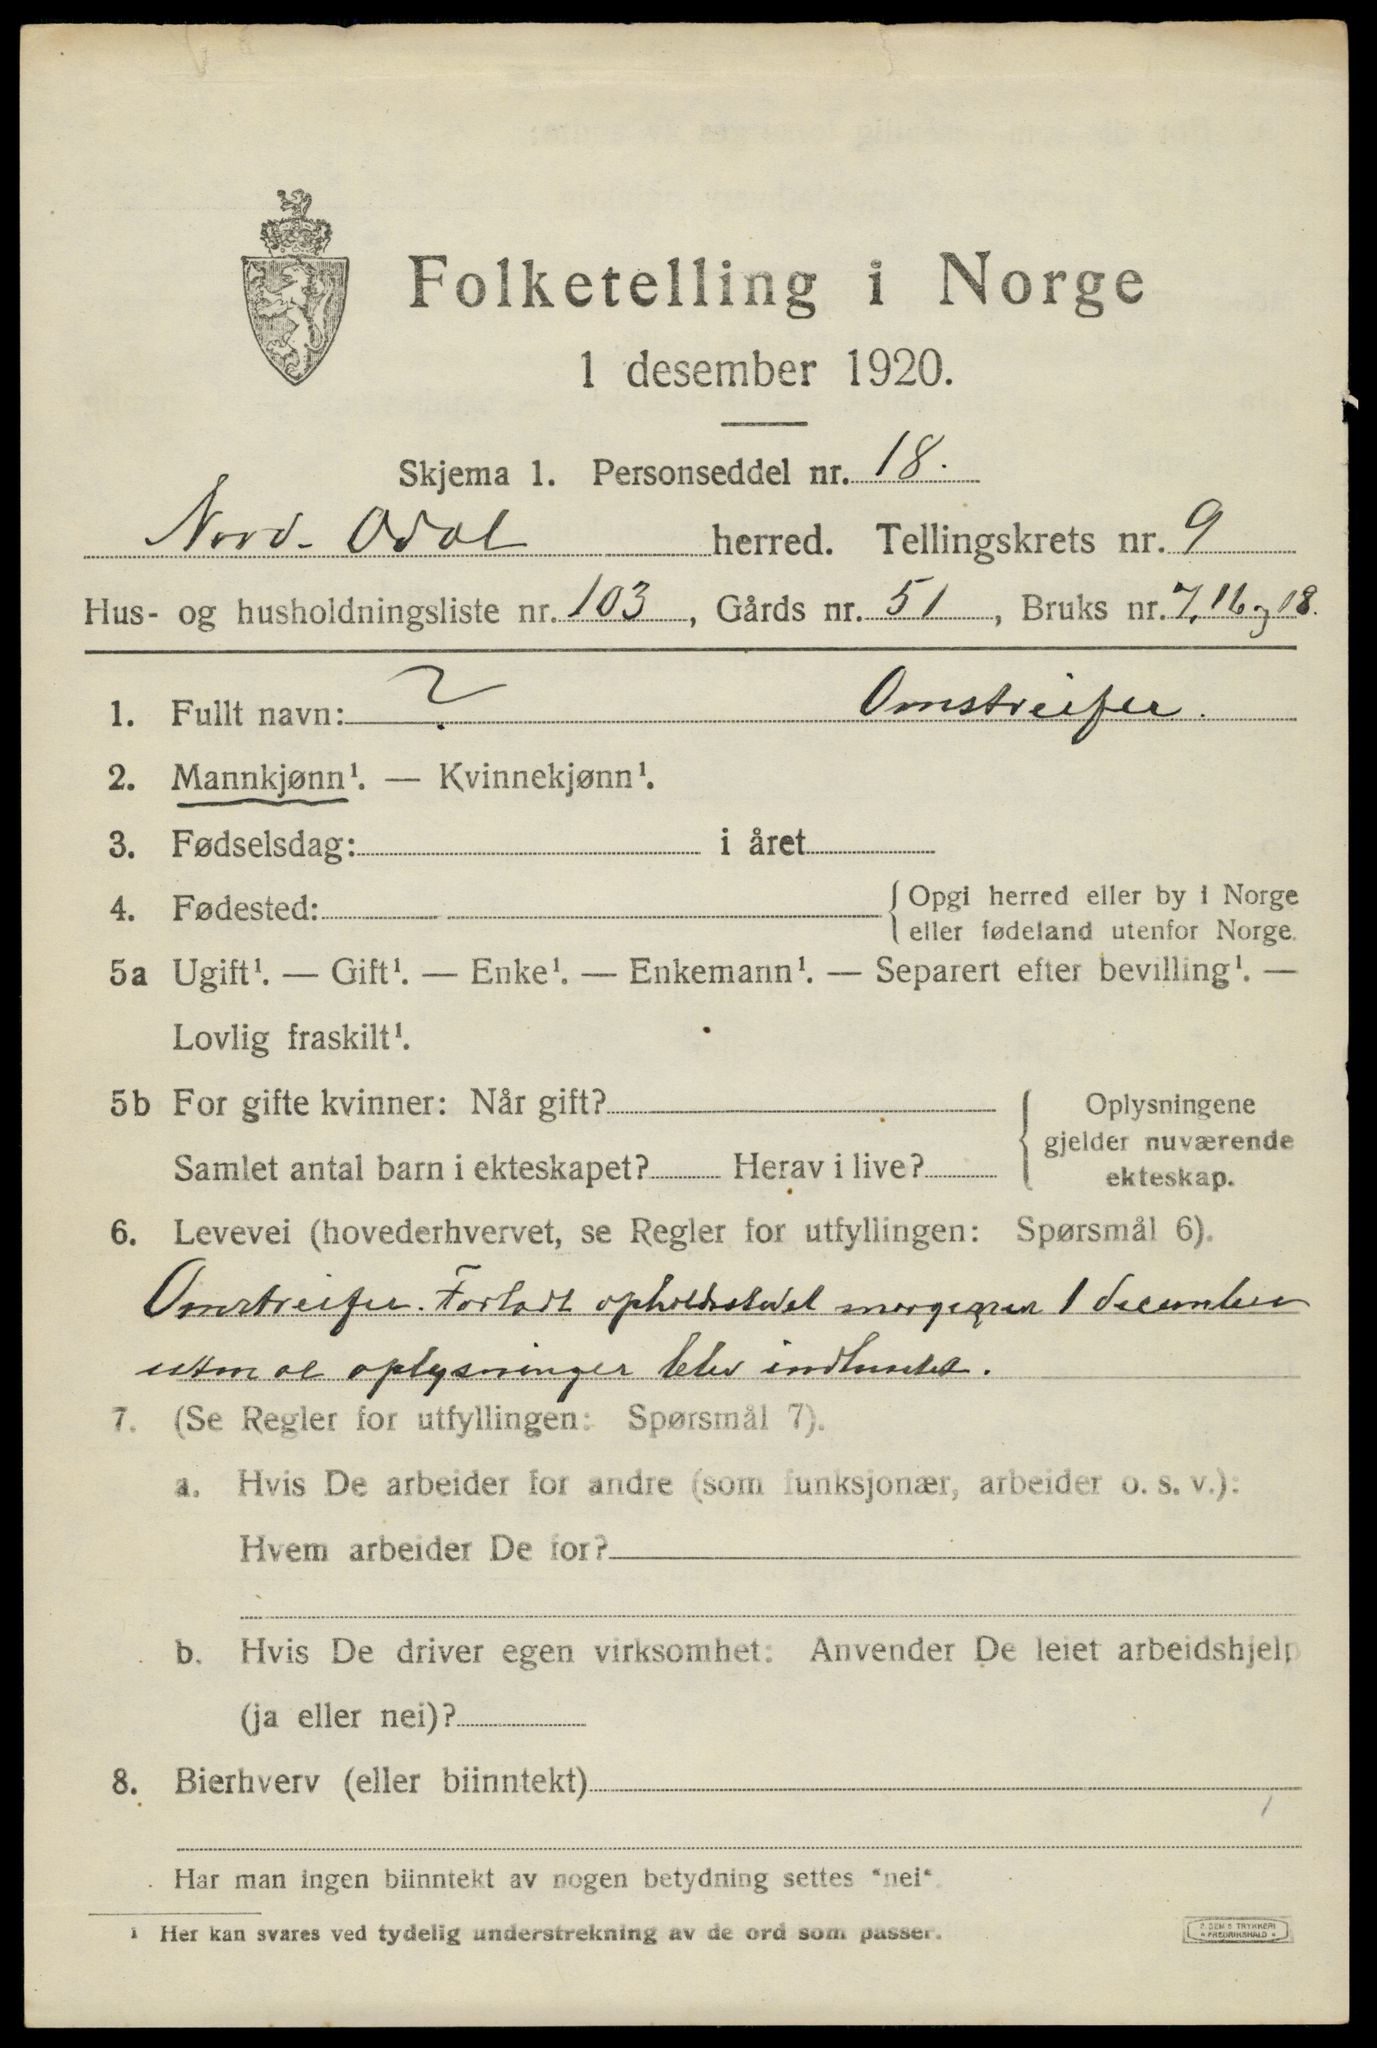 Folketelling i Norge
1 desember 1920.
Skjema 1. Personseddel nr. 18.
Nord-Odal herred. Tellingskrets nr. 9
Hus- og husholdningsliste nr. 103, Gårds nr. 51, Bruks nr. 7, 16 og 18.
1. Fullt navn: ? Omstreifer.
2. Mannkjønn¹. — Kvinnekjønn¹.
3. Fødselsdag: i året
4. Fødested: { Opgi herred eller by i Norge
eller fødeland utenfor Norge.
5a Ugift¹. — Gift¹. — Enke¹. — Enkemann¹. — Separert efter bevilling¹. —
Lovlig fraskilt¹.
5b For gifte kvinner: Når gift?
Samlet antal barn i ekteskapet? Herav i live?
{ Oplysningene
gjelder nuværende
ekteskap.
6. Levevei (hovederhvervet, se Regler for utfyllingen: Spørsmål 6).
Omstreifer. Forlodt opholdsstedet morgegnen 1 december
uten at oplysninger blev indhentet.
7. (Se Regler for utfyllingen: Spørsmål 7).
a. Hvis De arbeider for andre (som funksjonær, arbeider o. s. v.):
Hvem arbeider De for?
b. Hvis De driver egen virksomhet: Anvender De leiet arbeidshjelp
(ja eller nei)?
8. Bierhverv (eller biinntekt)
Har man ingen biinntekt av nogen betydning settes "nei".
¹ Her kan svares ved tydelig understrekning av de ord som passer.
FREDRIKSHALD